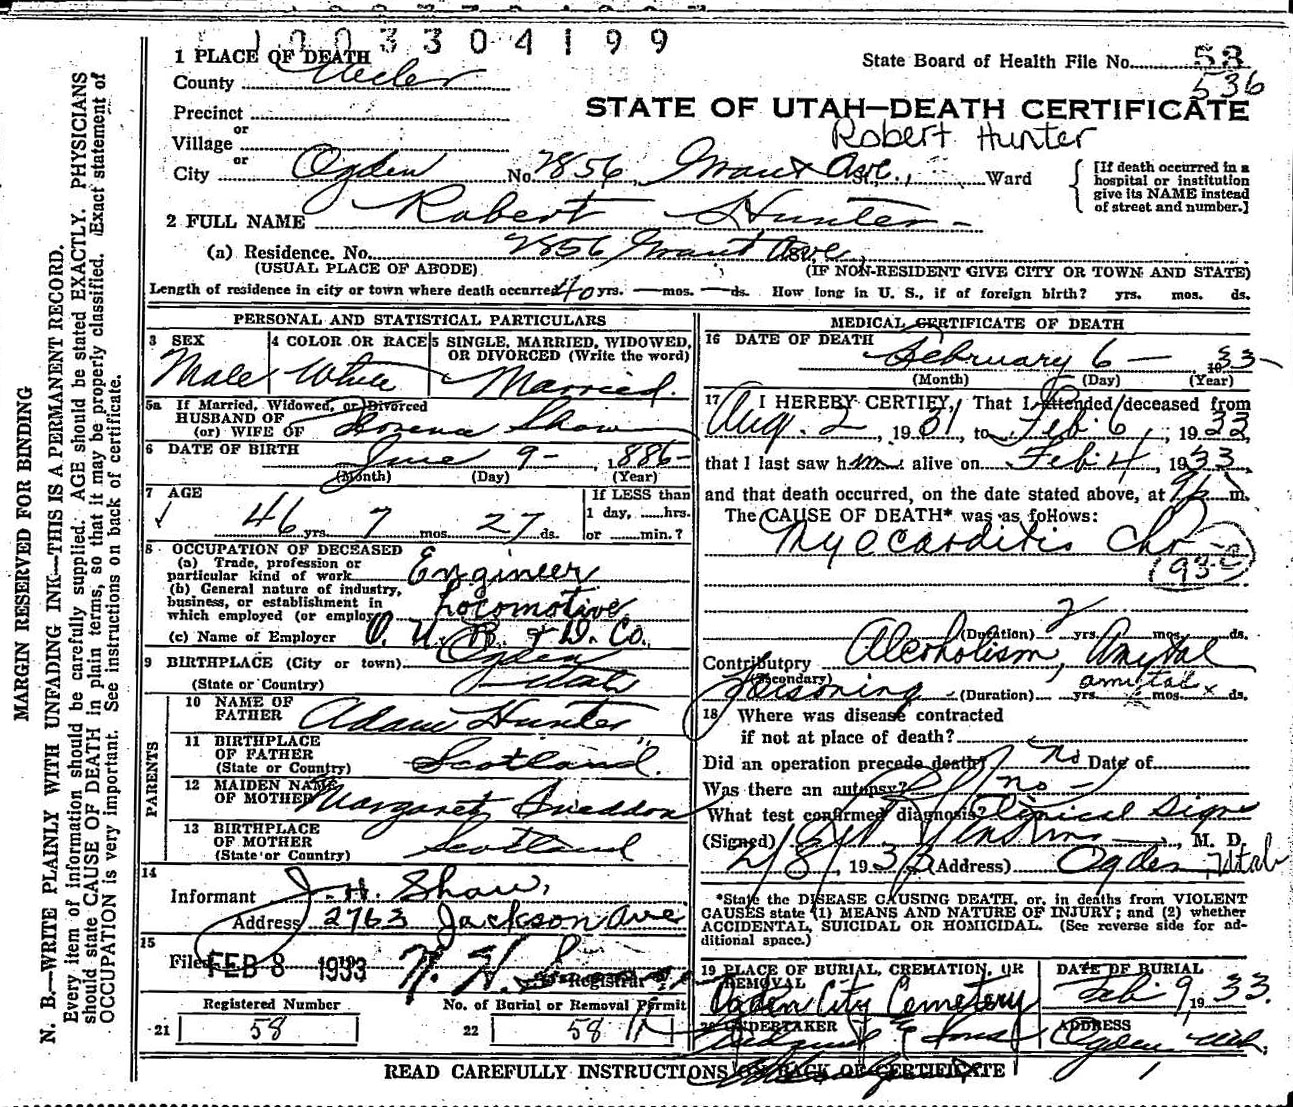 1003304199
1 PLACE OF DEATH
State Board of Health File No. 53
536
County Weber
STATE OF UTAH—DEATH CERTIFICATE
Robert Hunter
Precinct
or
Village
or
City Ogden No. 2856 Grant Ave. Ward
[If death occurred in a hospital or institution give its NAME instead of street and number.]
2 FULL NAME Robert Hunter
(a) Residence. No. 2856 Grant Ave
(USUAL PLACE OF ABODE) (IF NON-RESIDENT GIVE CITY OR TOWN AND STATE)
Length of residence in city or town where death occurred 40 yrs. — mos. — ds. How long in U. S., if of foreign birth? yrs. mos. ds.
MARGIN RESERVED FOR BINDING
N. B.—WRITE PLAINLY WITH UNFADING INK—THIS IS A PERMANENT RECORD.
Every item of information should be carefully supplied. AGE should be stated EXACTLY. PHYSICIANS
should state CAUSE OF DEATH in plain terms, so that it may be properly classified. Exact statement of
OCCUPATION is very important. See instructions on back of certificate.
PERSONAL AND STATISTICAL PARTICULARS
3 SEX
Male
4 COLOR OR RACE
White
5 SINGLE, MARRIED, WIDOWED,
OR DIVORCED (Write the word)
Married.
5a If Married, Widowed, or Divorced
HUSBAND OF
(or) WIFE OF Shaw
6 DATE OF BIRTH June 9- 1886-
(Month) (Day) (Year)
7 AGE
46 yrs. 7 mos. 27 ds.
If LESS than
1 day, ......hrs.
or ......min.?
8 OCCUPATION OF DECEASED
(a) Trade, profession or
particular kind of work Engineer
(b) General nature of industry,
business, or establishment in
which employed (or employer) Locomotive
(c) Name of Employer O. U. R. & D. Co.
9 BIRTHPLACE (City or town) Ogden
(State or Country) Utah
PARENTS
10 NAME OF
FATHER Adam Hunter
11 BIRTHPLACE
OF FATHER
(State or Country) Scotland.
12 MAIDEN NAME
OF MOTHER Margaret Sneddon
13 BIRTHPLACE
OF MOTHER
(State or Country) Scotland
14
Informant J. H. Shaw,
Address 2763 Jackson Ave
15
Filed FEB 8 1933
Registrar
Registered Number
21 58
No. of Burial or Removal Permit
22 58
MEDICAL CERTIFICATE OF DEATH
16 DATE OF DEATH
February 6 — 1933-
(Month) (Day) (Year)
17 I HEREBY CERTIFY, That I attended deceased from
Aug. 2, 1931, to Feb. 6, 1933,
that I last saw him alive on Feb 4, 1933,
and that death occurred, on the date stated above, at m.
The CAUSE OF DEATH* was as follows:
Myocarditis Chr
(Duration) 2 yrs. mos. ds.
Contributory Alcoholism, Amytal
(Secondary)
Poisoning (Duration) yrs. mos. ds.
amital x
18 Where was disease contracted
if not at place of death?
Did an operation precede death? no Date of
Was there an autopsy? no -
What test confirmed diagnosis? Clinical Signs
(Signed) , M. D.
2/8/, 1933 (Address) Ogden, Utah
*State the DISEASE CAUSING DEATH, or, in deaths from VIOLENT
CAUSES state (1) MEANS AND NATURE OF INJURY; and (2) whether
ACCIDENTAL, SUICIDAL OR HOMICIDAL. (See reverse side for ad-
ditional space.)
19 PLACE OF BURIAL, CREMATION, OR
REMOVAL
Ogden City Cemetery
DATE OF BURIAL
Feb 9, 1933.
20 UNDERTAKER
& Sons
ADDRESS
Ogden Utah.
READ CAREFULLY INSTRUCTIONS ON BACK OF CERTIFICATE